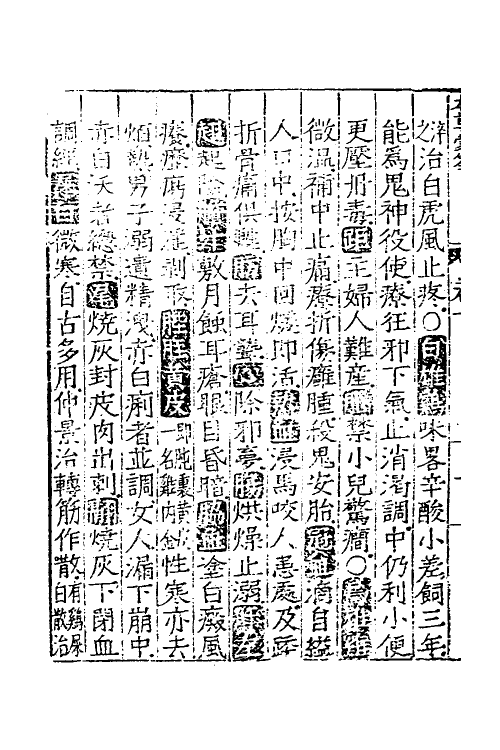 辟治白虎風止疼〇白雄雞味畧辛酸小差飼三年
能爲鬼神役使療狂邪下氣止消渴調中仍利小便
更壓丹毒距主婦人難產 禁小兒驚癎〇烏雄雞
微溫補中止痛療折傷癰腫殺鬼安胎冠血滴自縊
人口中按胸中回煖卽活 血浸馬咬人患處及踒
折骨痛俱 去耳聾心除邪夢腸烘燥止溺
起陰 敷月蝕耳瘡眼目昏暗 血塗白癜風
癧瘍 剝取 黃皮一名雞內 性寒亦去
煩熱男子弱遺精洩赤白痢者並調女人漏下崩中
赤白沃者總禁尾燒灰封皮肉出刺翮燒灰下閉血
調經屎白微寒自古多用仲景治轉筋作散有雞屎白散治